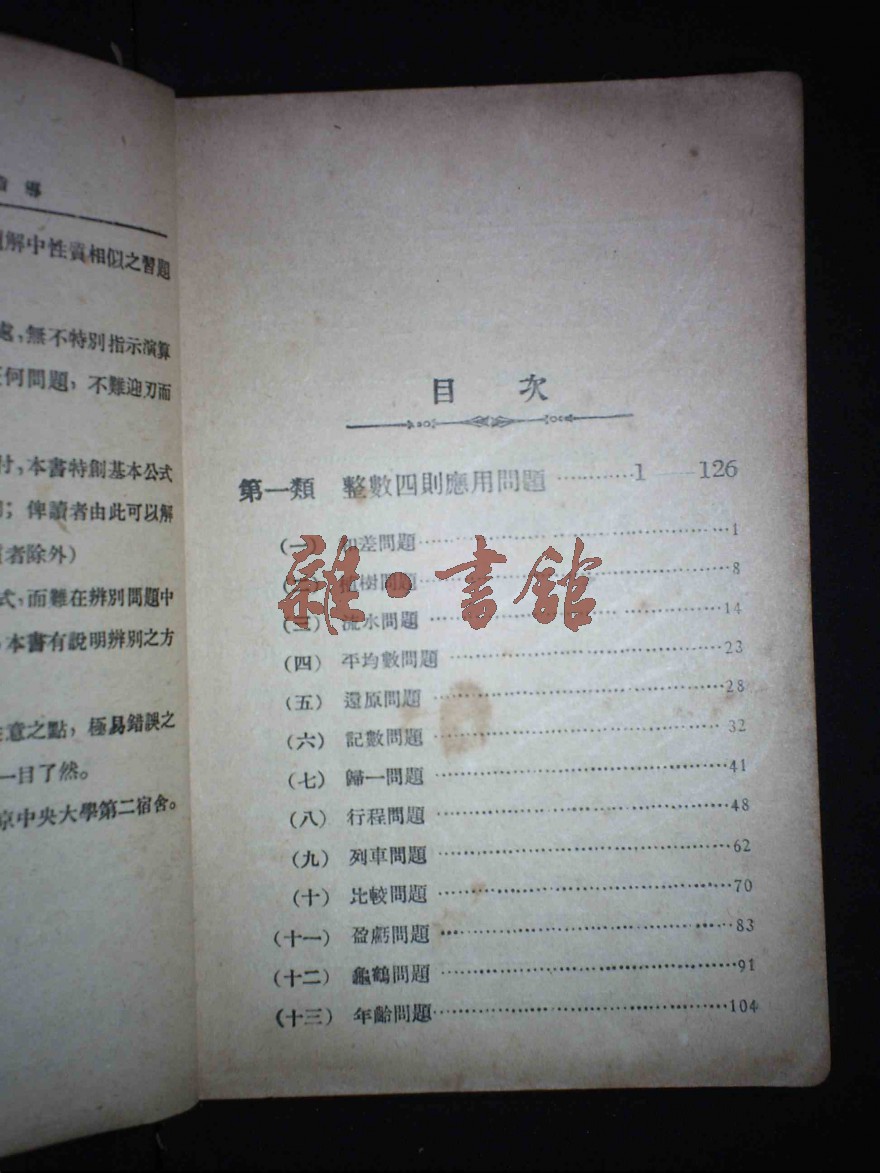 導
解中性質相似之習題
處，無不特別指示演算
何問題，不難迎刃而
付，本書特創基本公式
；俾讀者由此可以解
者除外）
式，而難在辨別問題中
本書有說明辨別之方
意之點，極易錯誤之
一目了然。
京中央大學第二宿舍。
目　次
第一類　整數四則應用問題…………1——126
（一）和差問題……1
（二）植樹問題……8
（三）流水問題……14
（四）平均數問題……23
（五）還原問題……28
（六）記數問題……32
（七）歸一問題……41
（八）行程問題……48
（九）列車問題……62
（十）比較問題……70
（十一）盈虧問題……83
（十二）龜鶴問題……91
（十三）年齡問題……104
雜·書館